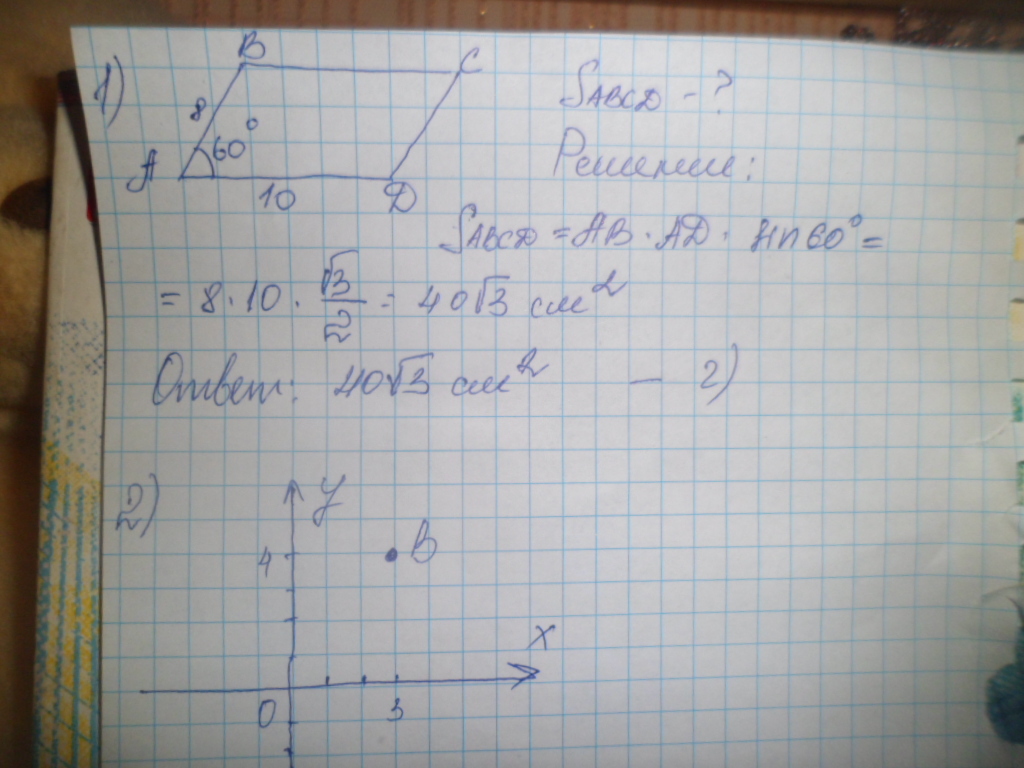 1)
B C
8
60°
A
10 D
S ABCD - ?
Решение:
S ABCD = AB · AD · sin 60° =
= 8 · 10 · √3/2 = 40√3 см²
Ответ: 40√3 см² — 2)
2)
y
4 B
x
0 3